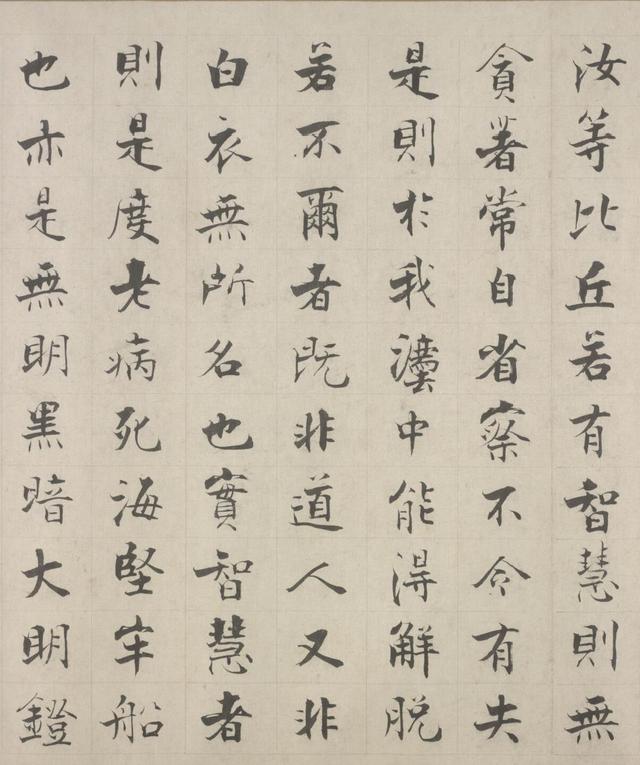 汝等比丘若有智慧則無
貪著常自省察不令有失
是則於我灋中能得解脫
若不爾者既非道人又非
白衣無所名也實智慧者
則是度老病死海堅牢船
也亦是無明黑暗大明鐙